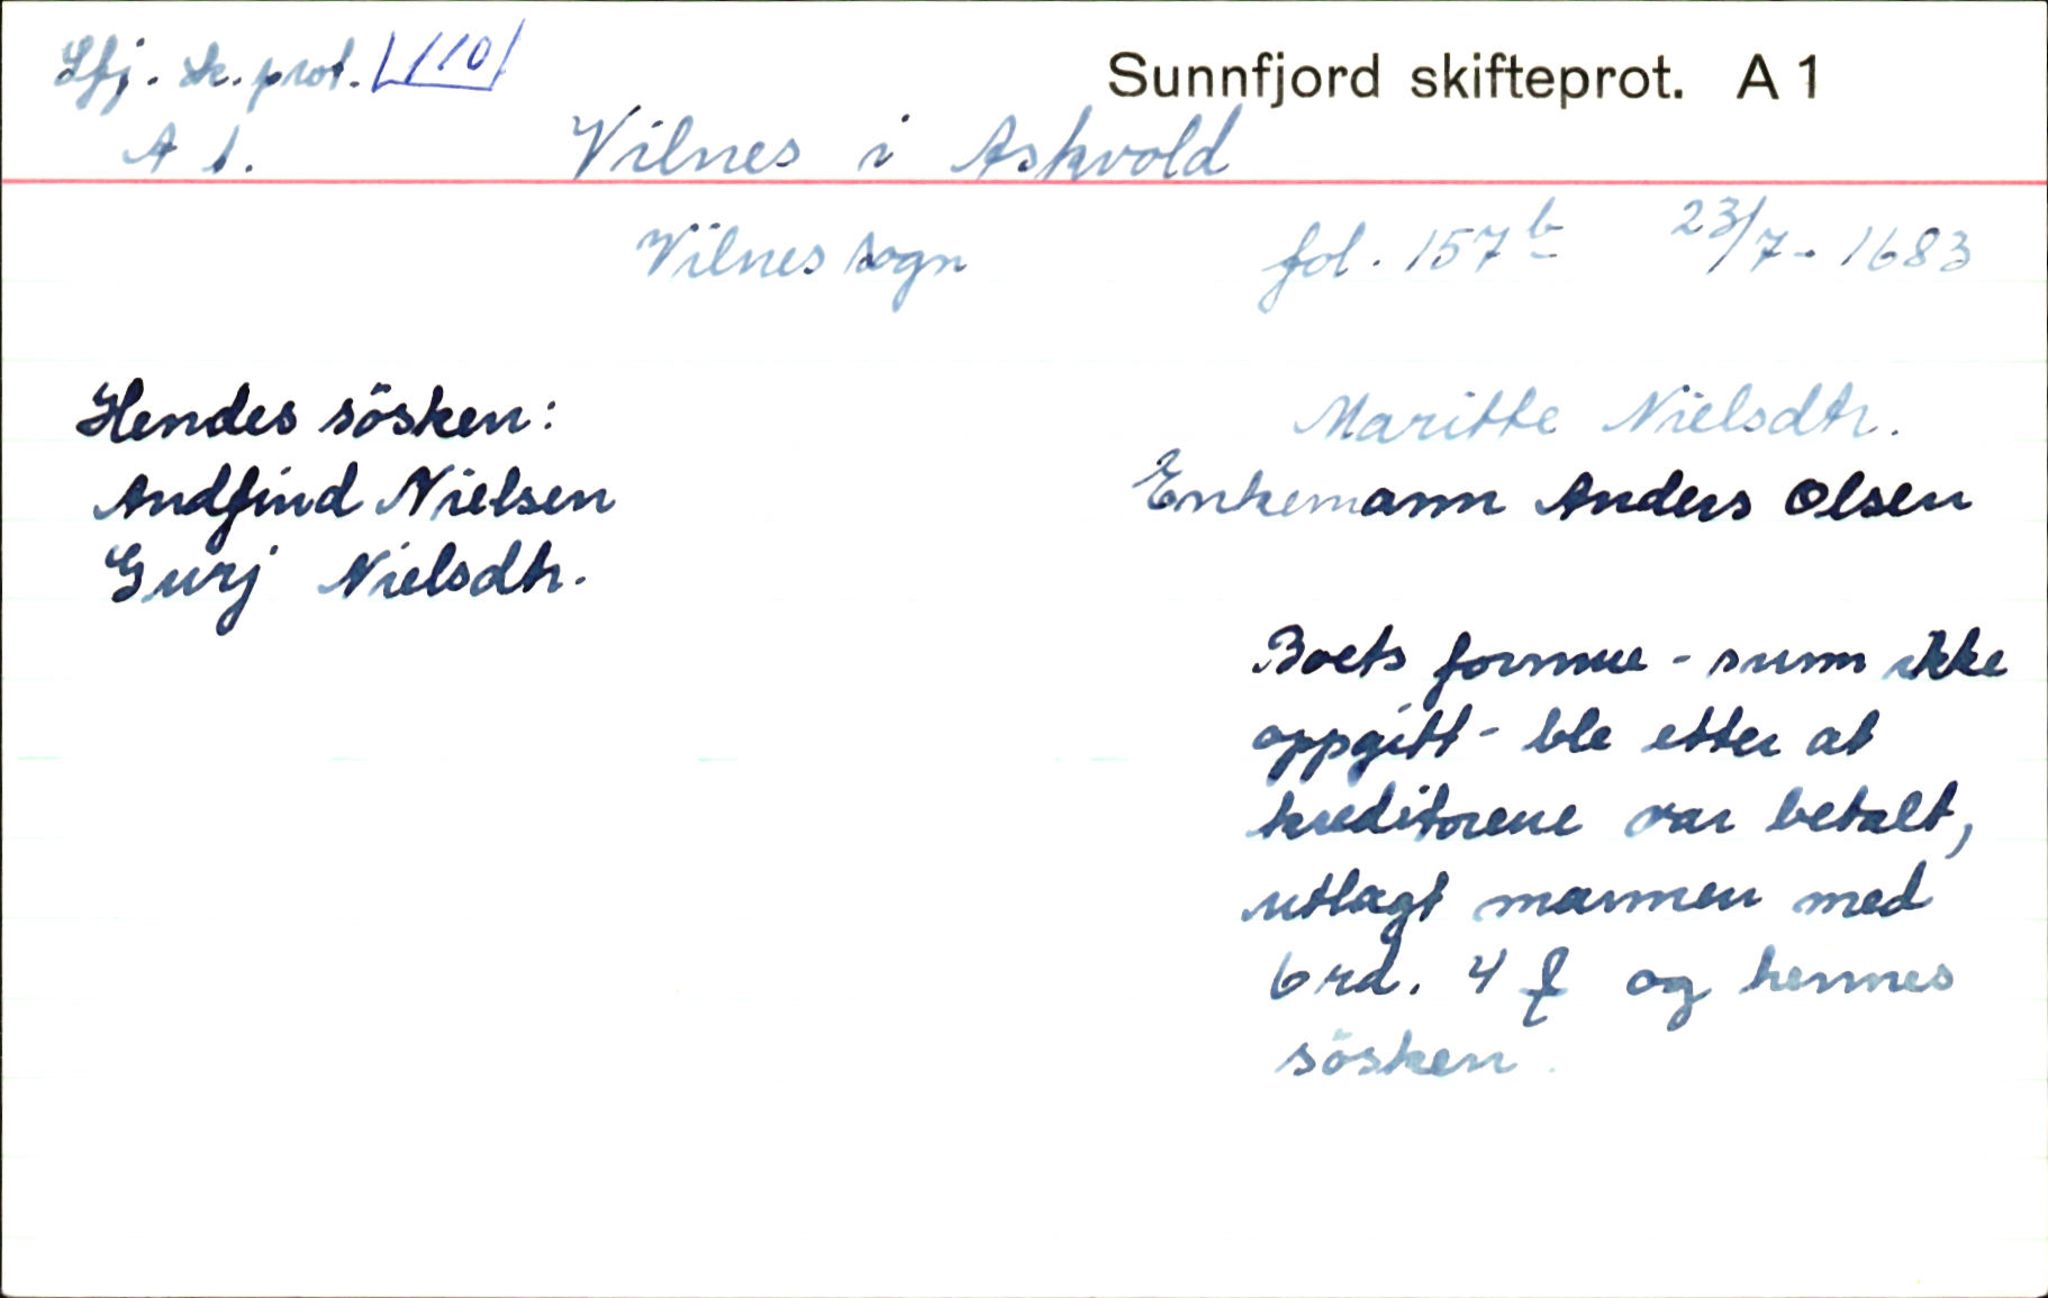 Sfj. sk. prot. 110
Sunnfjord skifteprot. A 1
A 1. Vilnes i Askvold
Vilnes sogn fol. 157 b 23/7 - 1683
Hendes sösken: Maritte Nielsdtr.
Andfind Nielsen Enkemann Anders Olsen
Gurj Nielsdtr.
Boets formue - sum ikke
oppgitt - ble etter at
kreditorene var betalt,
utlagt mannen med
6 rd. 4 ₰ og hennes
sösken.